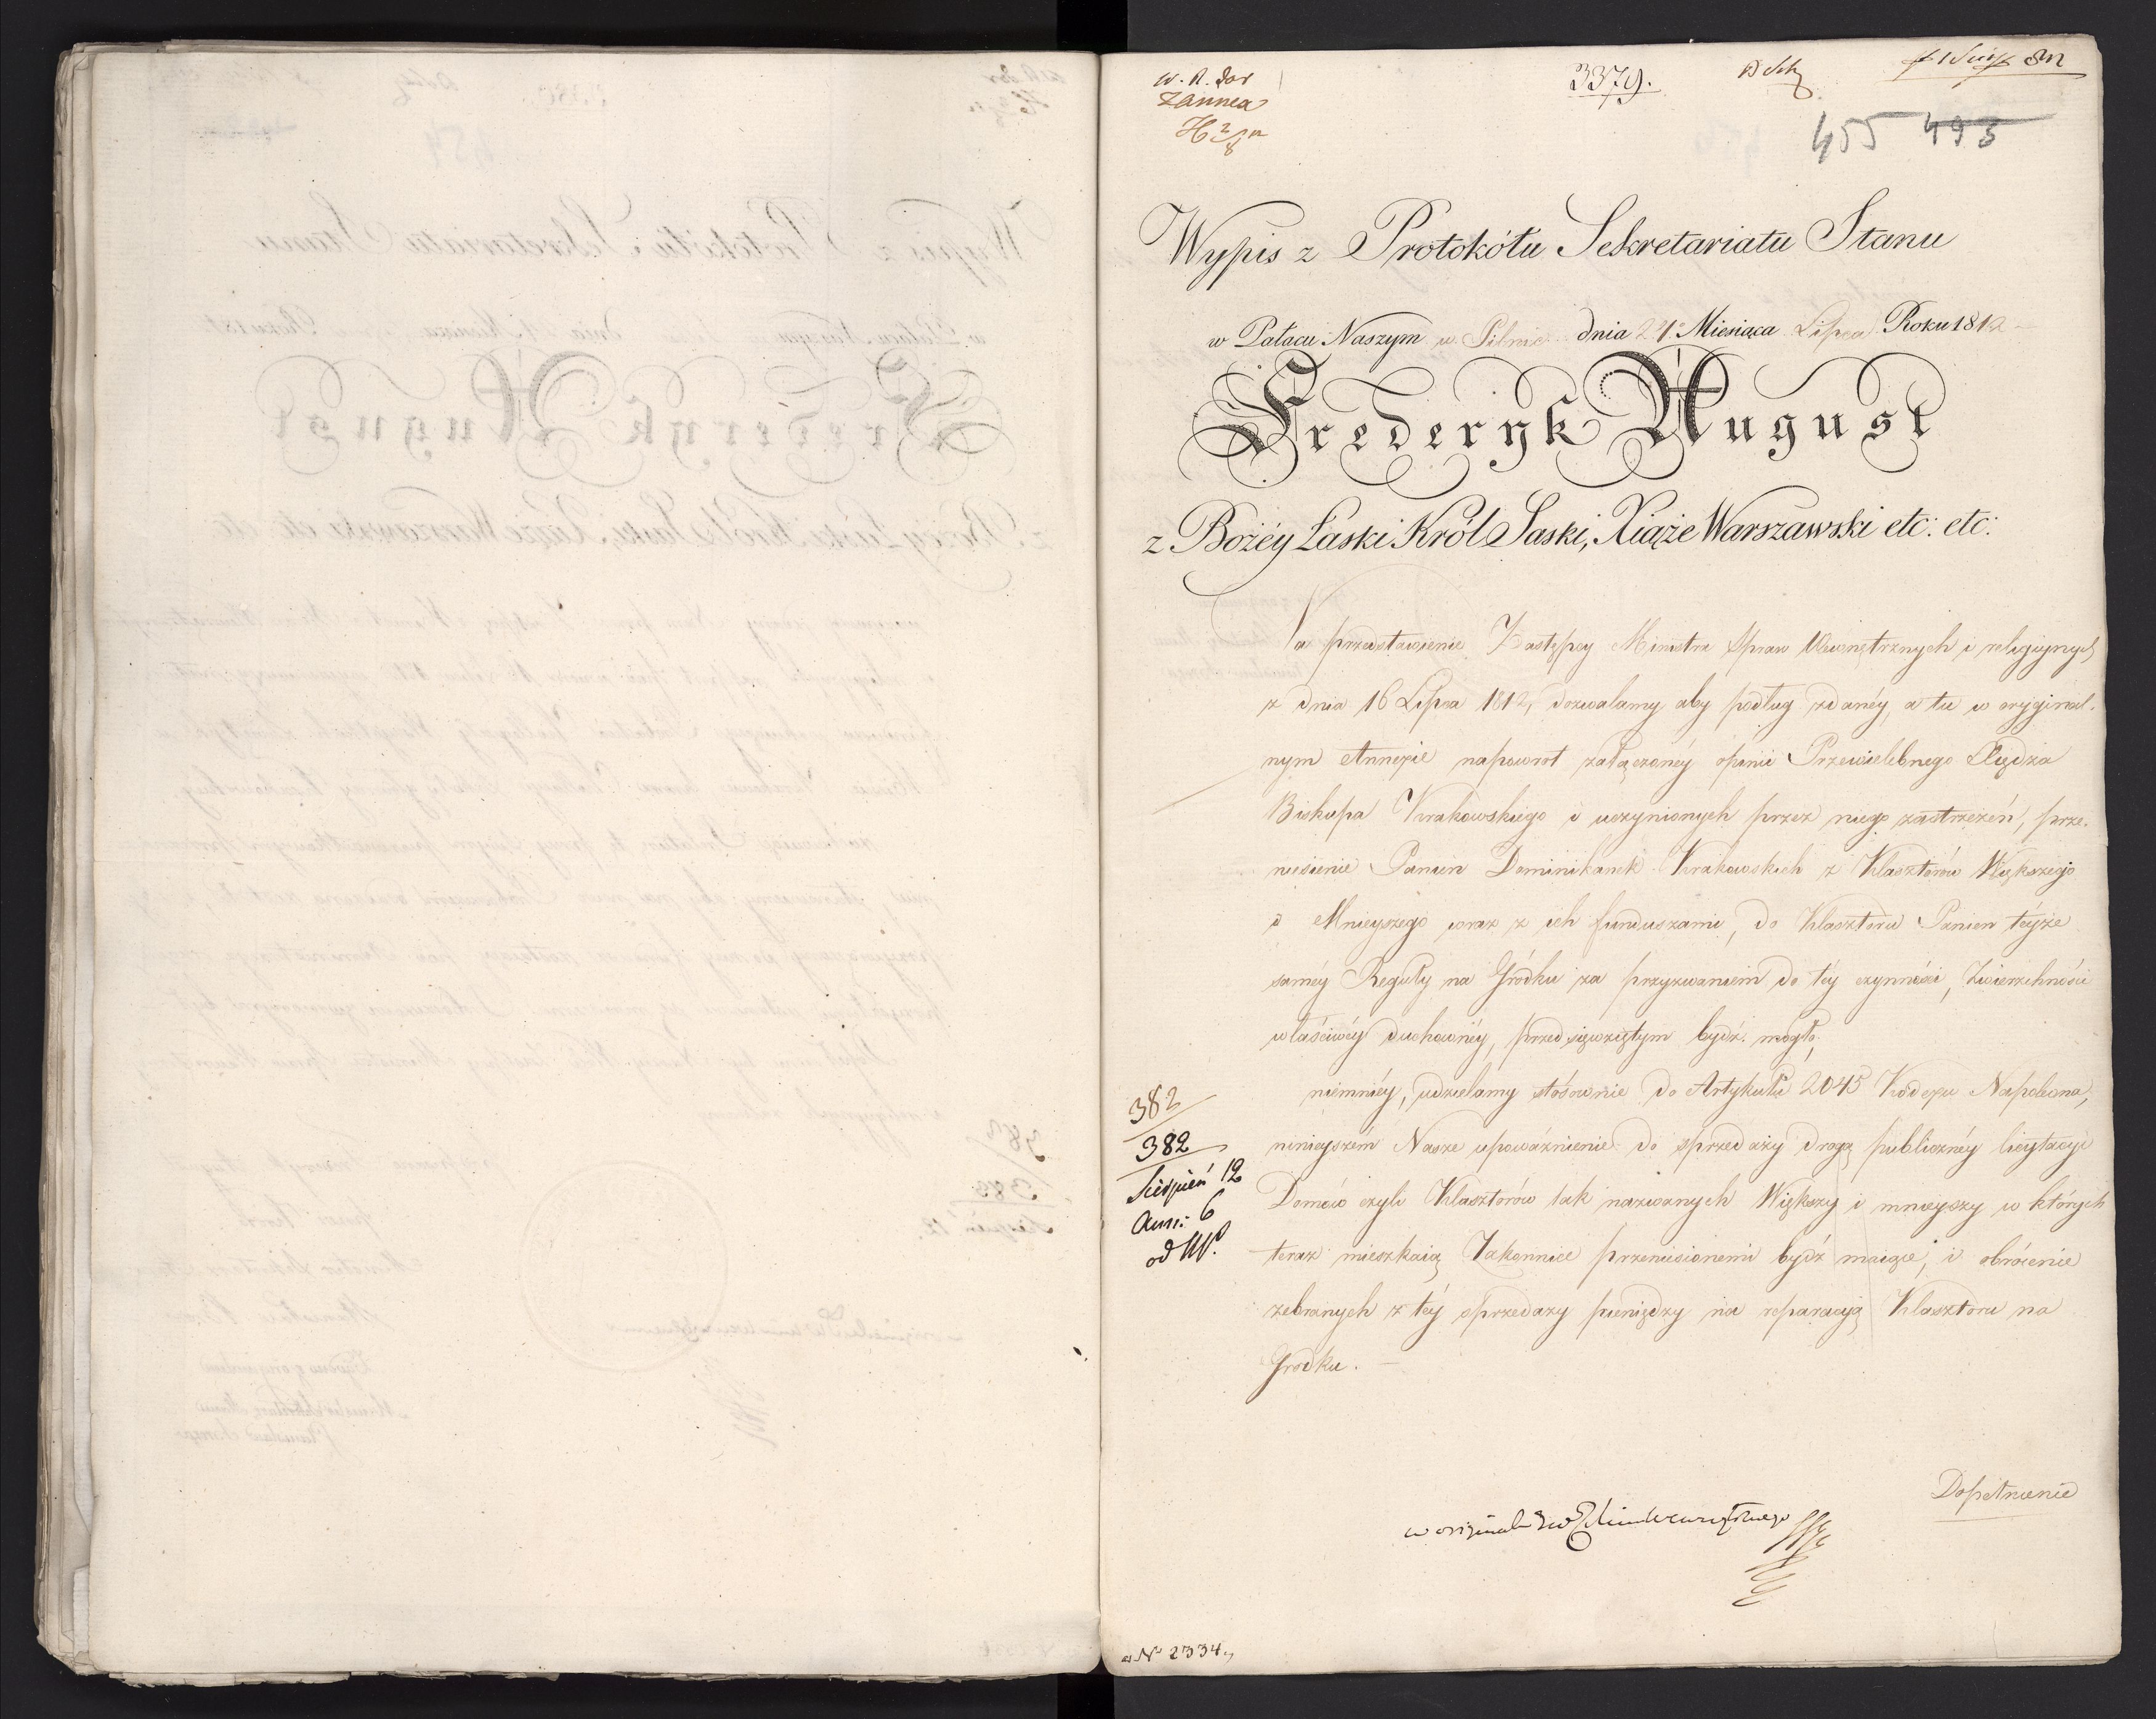 3379.
455 493
Wypis z Protokółu Sekretariatu Stanu
w Pałacu Naszym w Pilnic dnia 24 Miesiąca Lipca Roku 1812
Frederyk August
z Bożéy Łaski Król Saski, Xiąże Warszawski etc: etc:
Na przedstawienie Zastępcy Ministra Spraw Wewnętrznych i religijnych
z dnia 16 Lipca 1812, dozwalamy aby podług zdanéy, a tu w oryginal-
nym Annexie napowrot załączonéy opinii Przewielebnego Xiędza
Biskupa Krakowskiego i uczynionych przez niego zastrzeżeń, prze-
niesienie Panien Dominikanek Krakowskich z Klasztorów Większego
i Mnieyszego wraz z ich funduszami, do Klasztoru Panien téyże
saméy Reguły na Gródku za przyzwaniem do téy czynności, Zwierzchności
właściwéy duchownéy, przedsięwziętym bydź mogło,
niemniéy, udzielamy stósownie do Artykułu 2045 Kodexu Napoleona,
ninieyszém Nasze upoważnienie do sprzedaży drogą publicznéy licytacyi
Domów czyli Klasztorów tak nazwanych Większy i mnieyszy w których
teraz mieszkaią Zakonnice przeniesionemi bydź maiące, i obrócenie
zebranych z téy sprzedaży pieniędzy na reparacyą Klasztoru na
Gródku. —
382
382
Sierpień 12
Ann: 6
od W.
Dopełnienie
N° 2334